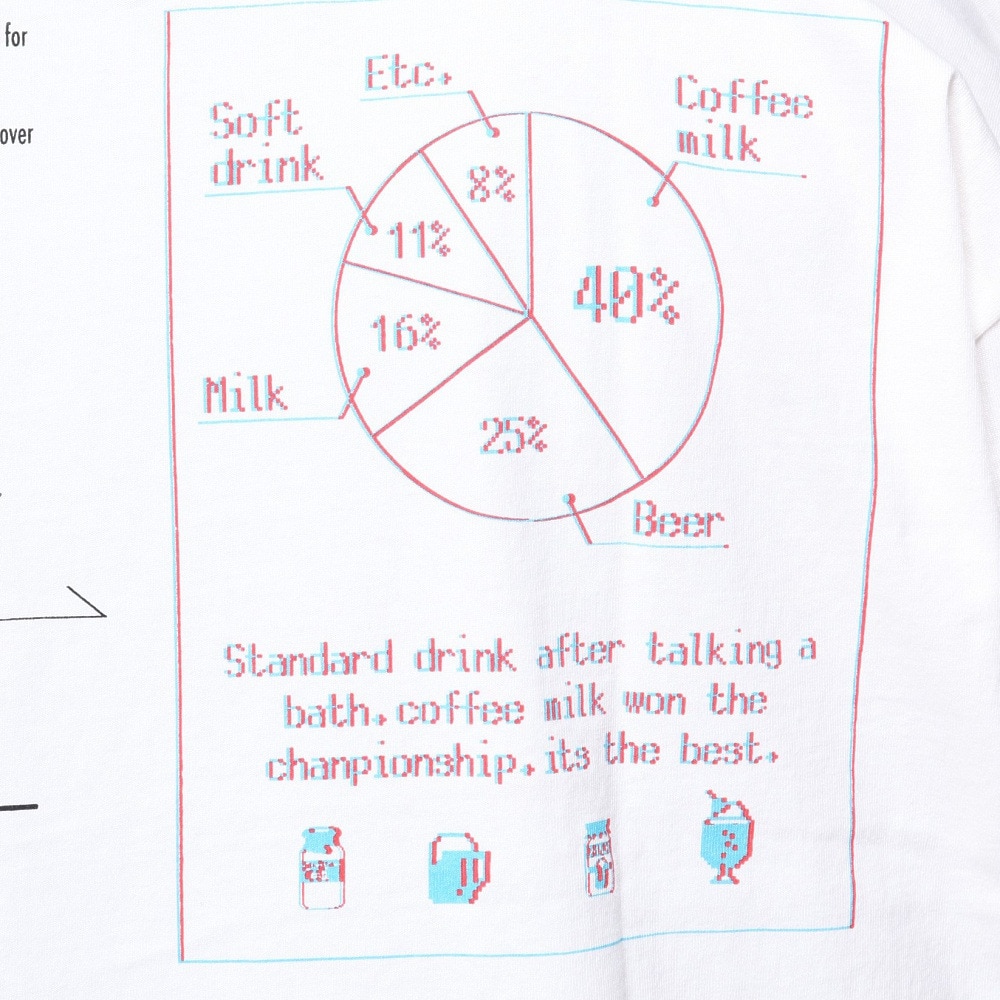 for
over
Etc.
Coffee
milk
Soft
drink
8%
11%
40%
16%
Milk
25%
Beer
Standard drink after talking a
bath. coffee milk won the
chanpionship. its the best.